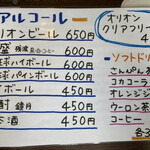 アルコール
オンビール 650円
盛 残波 600円
ハイボール 600円
パインボール 600円
450円
酎 鏡月 450円
酒 450円
オリオン
クリアフリー
4
ソフトドリ
さんぴん茶
コカコーラ
オレンジジ
ウーロン茶
コーヒー
各3